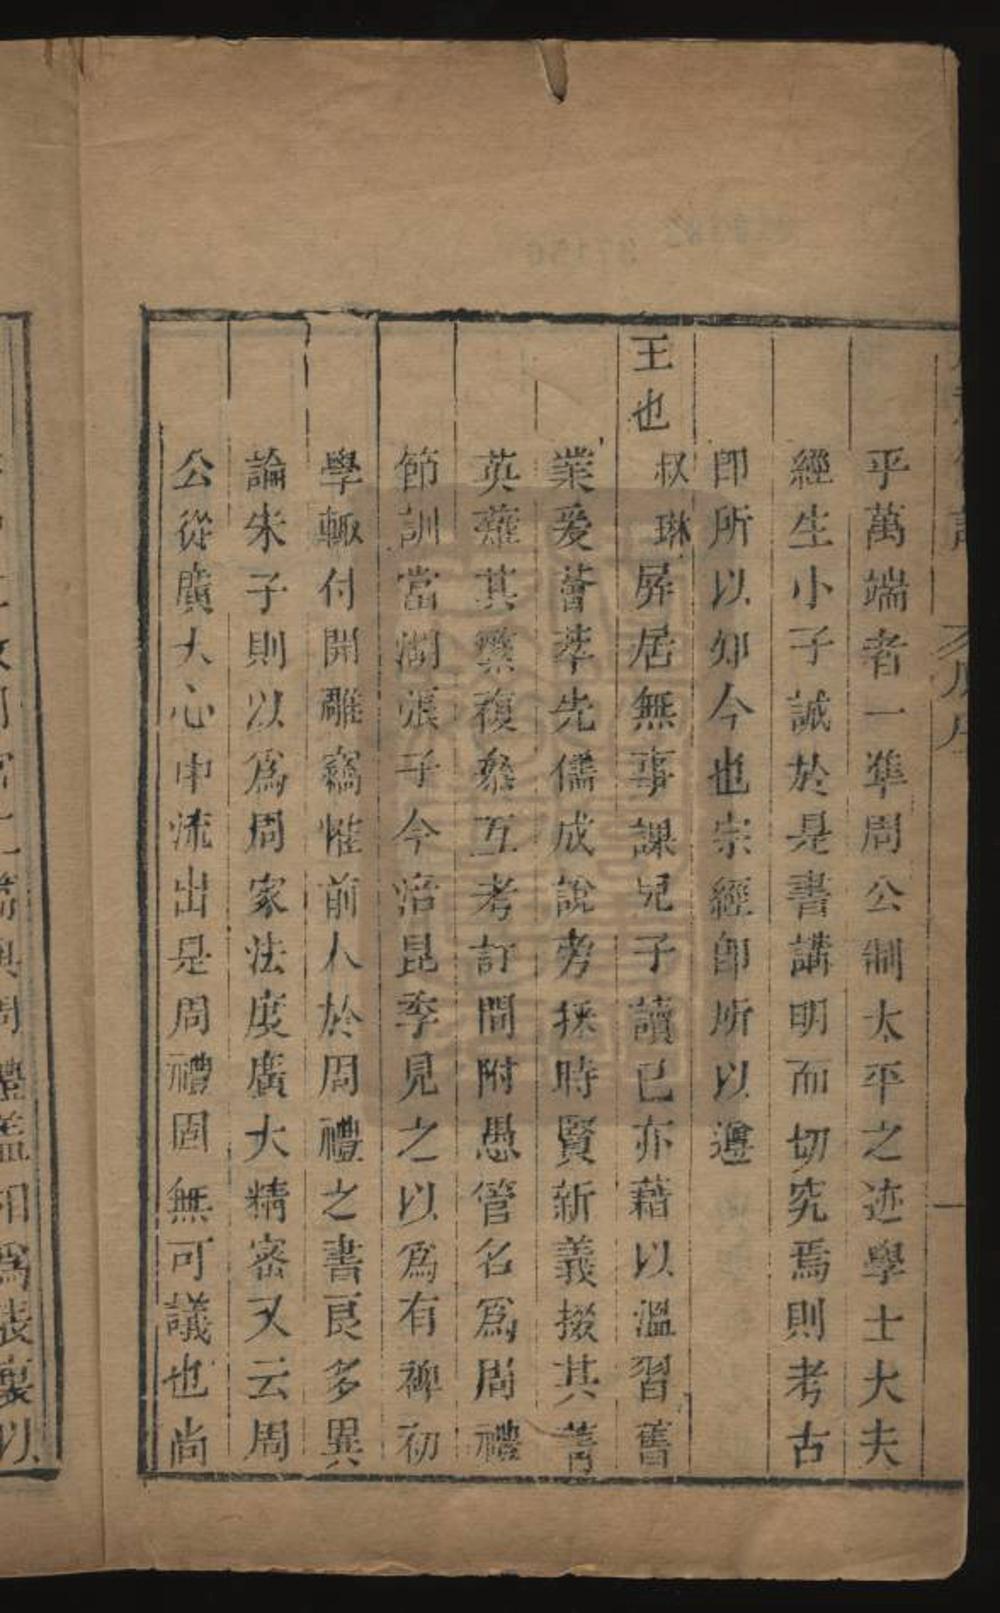 平萬端者一準周公制太平之迹學士大夫
經生小子誠於是書講明而切究焉則考古
卽所以知今也宗經卽所以遵
王也
叔琳屏居無事課兒子讀已亦藉以溫習舊
業爰薈萃先儒成說旁採時賢新義掇其菁
英薙其繁複叅互考訂間附愚管名爲周禮
節訓當湖張子今涪昆季見之以爲有裨初
學輙付開雕竊惟前人於周禮之書良多異
論朱子則以爲周家法度廣大精密又云周
公從廣大心中流出是周禮固無可議也尚